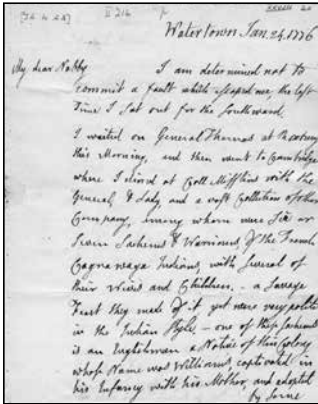 Watertown Jan. 24. 1776
My dear Nabby
I am determined not to
commit a fault which escaped me, the last
Time I sat out for the southward.
I waited on General Thomas at Roxbury
this Morning, and then went to Cambridge
where I dined at Coll Mifflins with the
General, & Lady, and a vast Collection of other
Company, among whom were six or
seven Sachems & Warriours, of the French
Cagnawaga Indians, with several of
their Wives and Children. - a savage
Feast they made of it, yet were very polite
in the Indian style. - one of these sachems
is an Englishman a Native of this Colony
whose Name was Williams, captivated in
his Infancy with his Mother, and adopted
by some